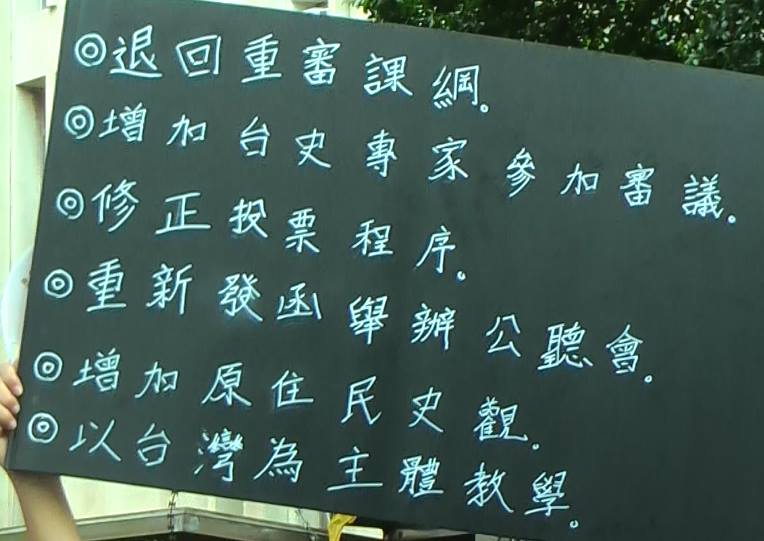 ◎退回重審課綱。
◎增加台史專家參加審議。
◎修正投票程序。
◎重新發函舉辦公聽會。
◎增加原住民史觀。
◎以台灣為主體教學。